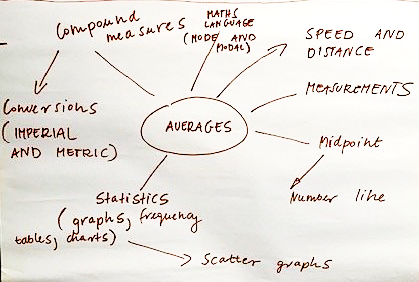 Compound
measures
MATHS
LANGUAGE
(MODE AND
MODAL)
SPEED AND
DISTANCE
MEASUREMENTS
Conversions
(IMPERIAL
AND METRIC)
AVERAGES
Midpoint
Number line
Statistics
(graphs, frequency
tables, charts)
Scatter graphs